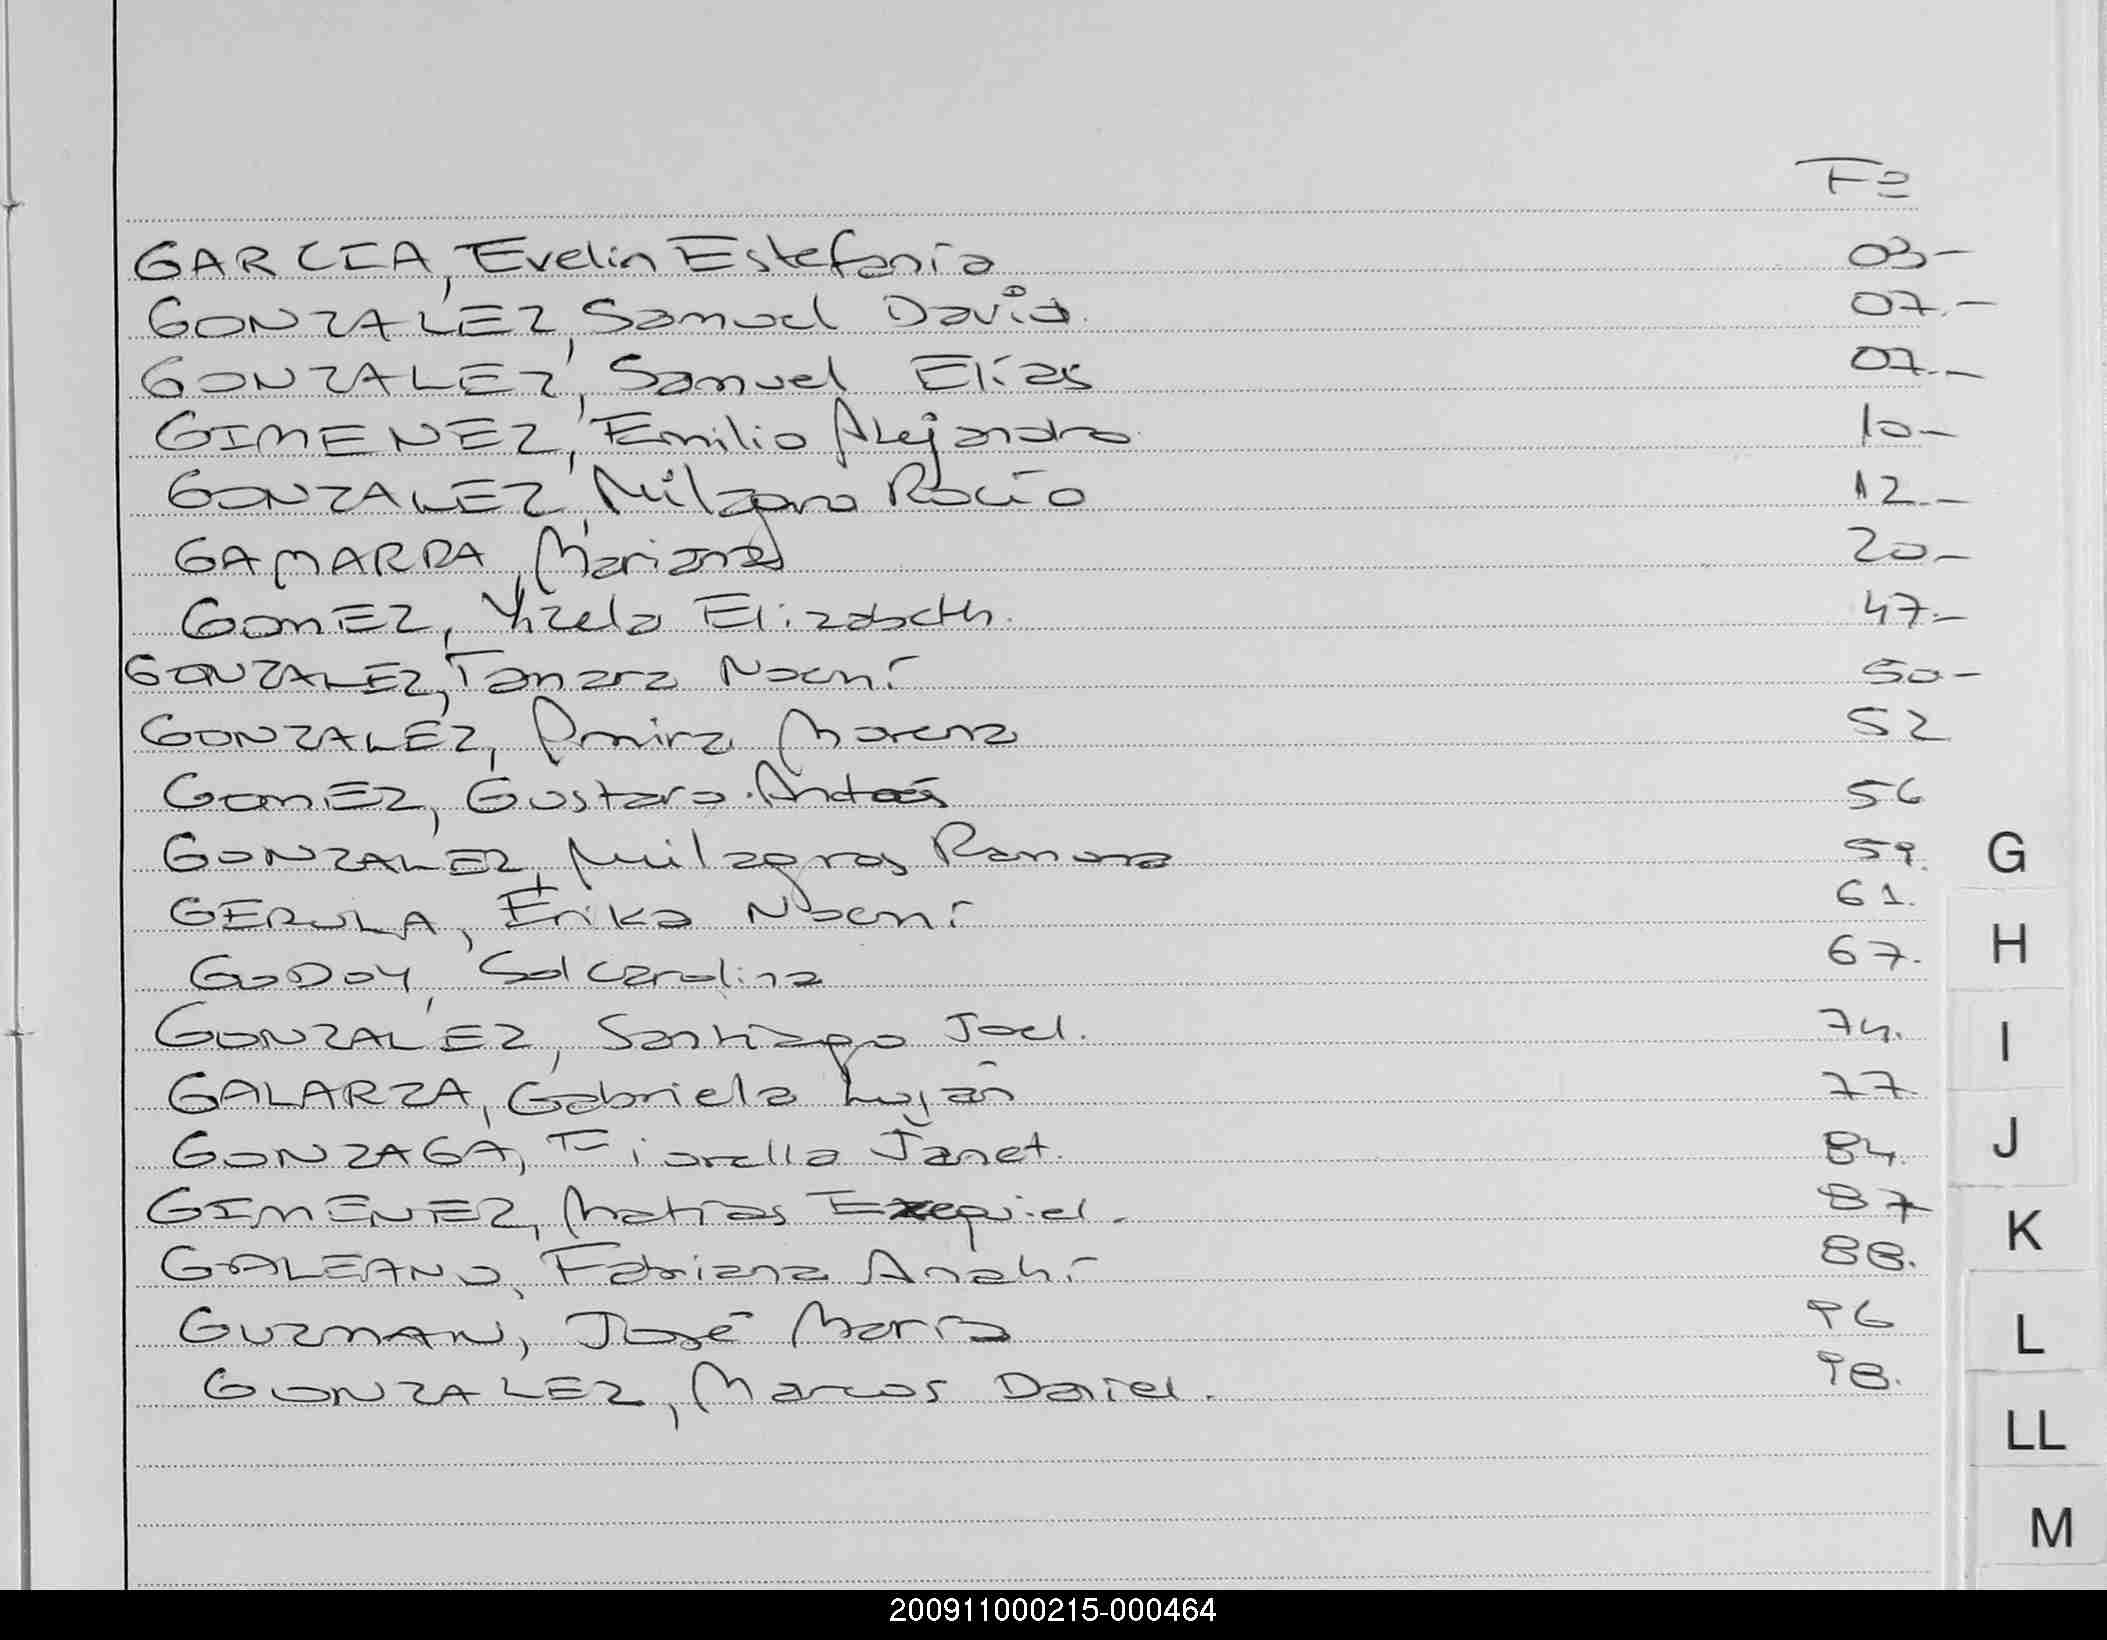 Fº
GARCIA, Evelin Estefanía 03-
GONZALEZ, Samuel David. 07.-
GONZALEZ, Samuel Elías 07.-
GIMENEZ, Emilio Alejandro. 10-
GONZALEZ, Milagro Rocío 12.-
GAMARRA, Mariana 20-
GOMEZ, Yizela Elizabeth. 47.-
GONZALEZ, Tamara Noemí 50-
GONZALEZ, Amira Morena 52
GOMEZ, Gustavo 56
GONZALEZ, Milagros Ramona 59.
GERULA, Erika Noemí 61.
GODOY, Sol Carolina 67.
GONZALEZ, Santiago Joel. 74.
GALARZA, Gabriela Luján 77
GONZAGA, Fiorella Janet. 84.
GIMENEZ, Matías Ezequiel. 87
GALEANO, Fabiana Anahí 88.
GUZMAN, José María 96
GONZALEZ, Marcos Daniel. 98.
G
H
I
J
K
L
LL
M
200911000215-000464